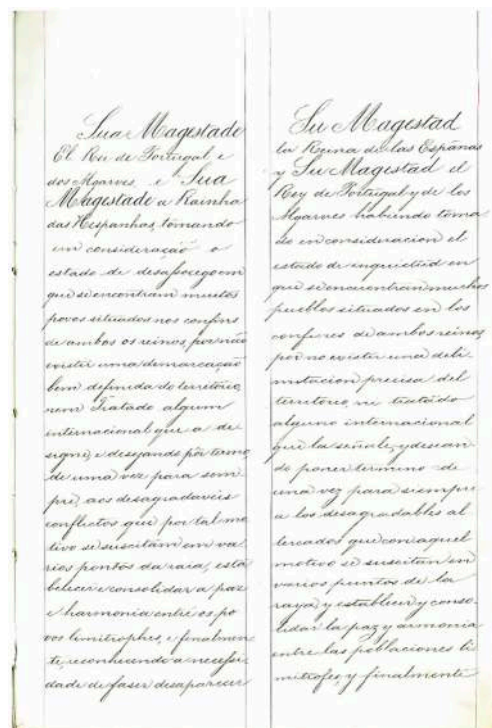 Sua Magestade
El Rei de Portugal e
dos Algarves e Sua
Magestade a Rainha
das Hespanhas, tomando
em consideração o
estado de desasocego em
que se encontram muitos
povos situados nos confins
de ambos os reinos por não
existir uma demarcação
bem definida do territorio,
nem Tratado algum
internacional que a de
signe; e desejando pôr termo
de uma vez para sem
pre, aos desagradaveis
conflictos que por tal mo
tivo se suscitam em va
rios pontos da raia, esta
belecer e consolidar a paz
e harmonia entre os po
vos limitrophes, e finalmen
te, reconhecendo a necessi
dade de faser desapparecer
Su Magestad
la Reina de las Españas
y Su Magestad el
Rey de Portugal y de los
Algarves habiendo toma
do en consideracion el
estado de inquietud en
que se encuentran muchos
pueblos situados en los
confines de ambos reinos,
por no existir una deli
mitacion precisa del
territorio, ni tratado
alguno internacional
que la señale; y desean
do poner termino de
una vez para siempre
a los desagradables al
tercados que con aquel
motivo se suscitan en
varios puntos de la
raya, y establecer y conso
lidar la paz y armonia
entre las poblaciones li
mitrofes, y finalmente